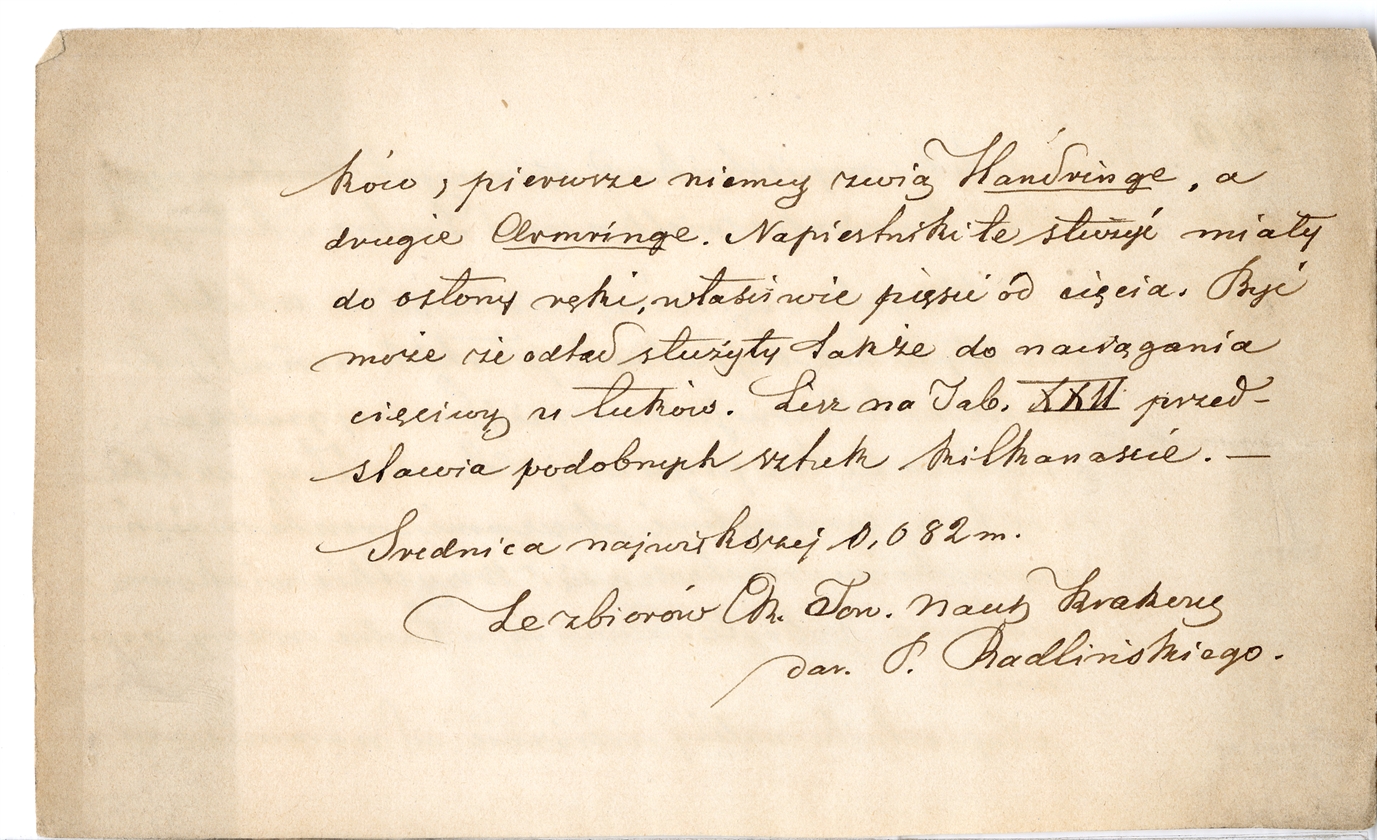 ków, pierwsze niemcy zwią Handringe, a
drugie Armringe. Napiestniki te służyć miały
do osłony ręki, właściwie pięści od cięcia. Być
może że odtąd służyły także do naciągania
cięciwy u łuków. Lisz na Tab. XXII przed-
stawia podobnych sztuk kilkanaście. —
Średnica największej 0,082 m.
Ze zbiorów Ck. Tow. Nauk Krakows
dar. P. Radlińskiego.